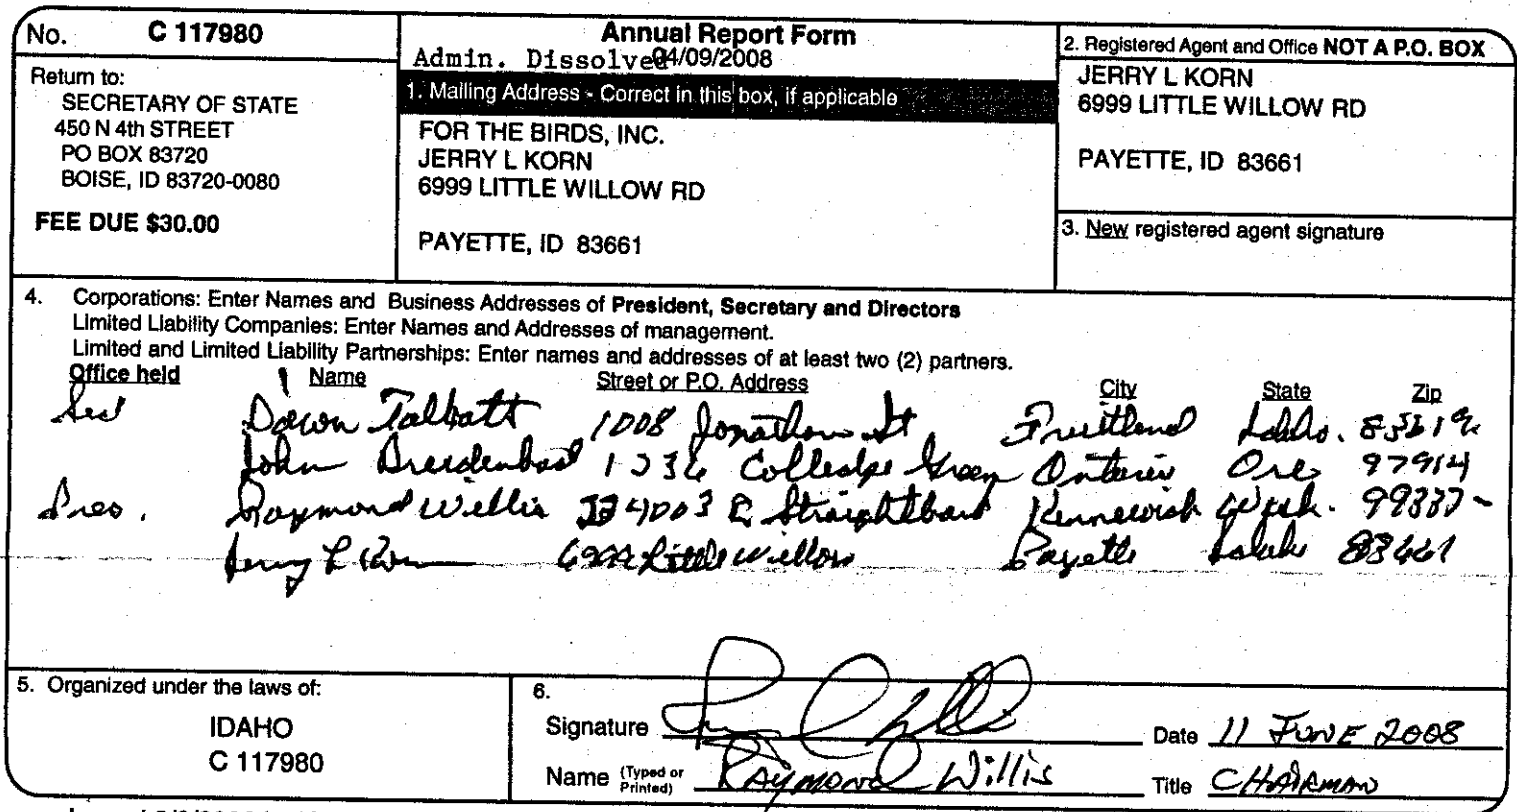 No. C 117980
Return to:
SECRETARY OF STATE
450 N 4th STREET
PO BOX 83720
BOISE, ID 83720-0080
FEE DUE $30.00
Annual Report Form
Admin. Dissolved 04/09/2008
1. Mailing Address - Correct in this box, if applicable
FOR THE BIRDS, INC.
JERRY L KORN
6999 LITTLE WILLOW RD
PAYETTE, ID 83661
2. Registered Agent and Office NOT A P.O. BOX
JERRY L KORN
6999 LITTLE WILLOW RD
PAYETTE, ID 83661
3. New registered agent signature
4. Corporations: Enter Names and Business Addresses of President, Secretary and Directors
Limited Liability Companies: Enter Names and Addresses of management.
Limited and Limited Liability Partnerships: Enter names and addresses of at least two (2) partners.
Office held Name Street or P.O. Address City State Zip
Dawn Talbott 1008 Jonathon St. Fruitland Idaho.
John Ontario Ore 97914
Pres. Raymond Willis Kennewick Wash.
Jerry L Korn Little Willow Payette Idaho 83661
5. Organized under the laws of:
IDAHO
C 117980
6.
Signature Date 11 JUNE 2008
Name (Typed or Printed) RAYMOND Willis Title CHAIRMAN